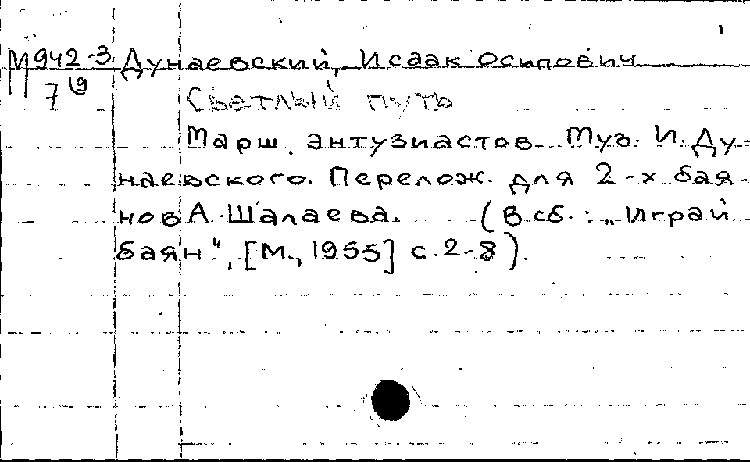 М 942-3 Дунаевский, Исаак Осипович
7
Светлый путь
Марш энтузиастов. Муз. И. Ду
наевского. Перелож. для 2-х бая
нов А. Шалаева. (В сб.: „Играй
баян“, [М., 1955] с. 2-8).